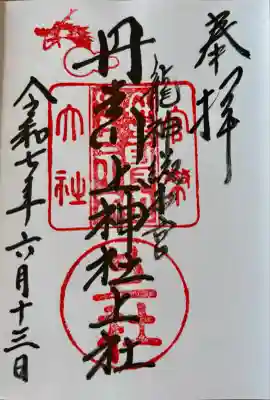 奉拝
龍神総本宮
丹生川上神社上社
令和七年六月十三日
大社
上社